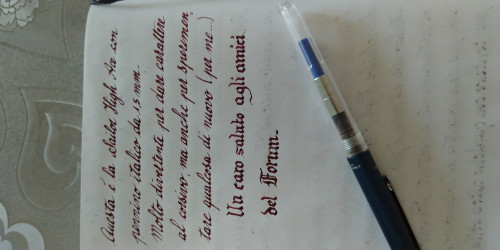 Questa è la Sailor High Ace con
pennino italico da 1.5 mm.
Molto divertente per dare carattere
al corsivo, ma anche per sperimen.
tare qualcosa di nuovo (per me...)
Un caro saluto agli amici
del Forum.